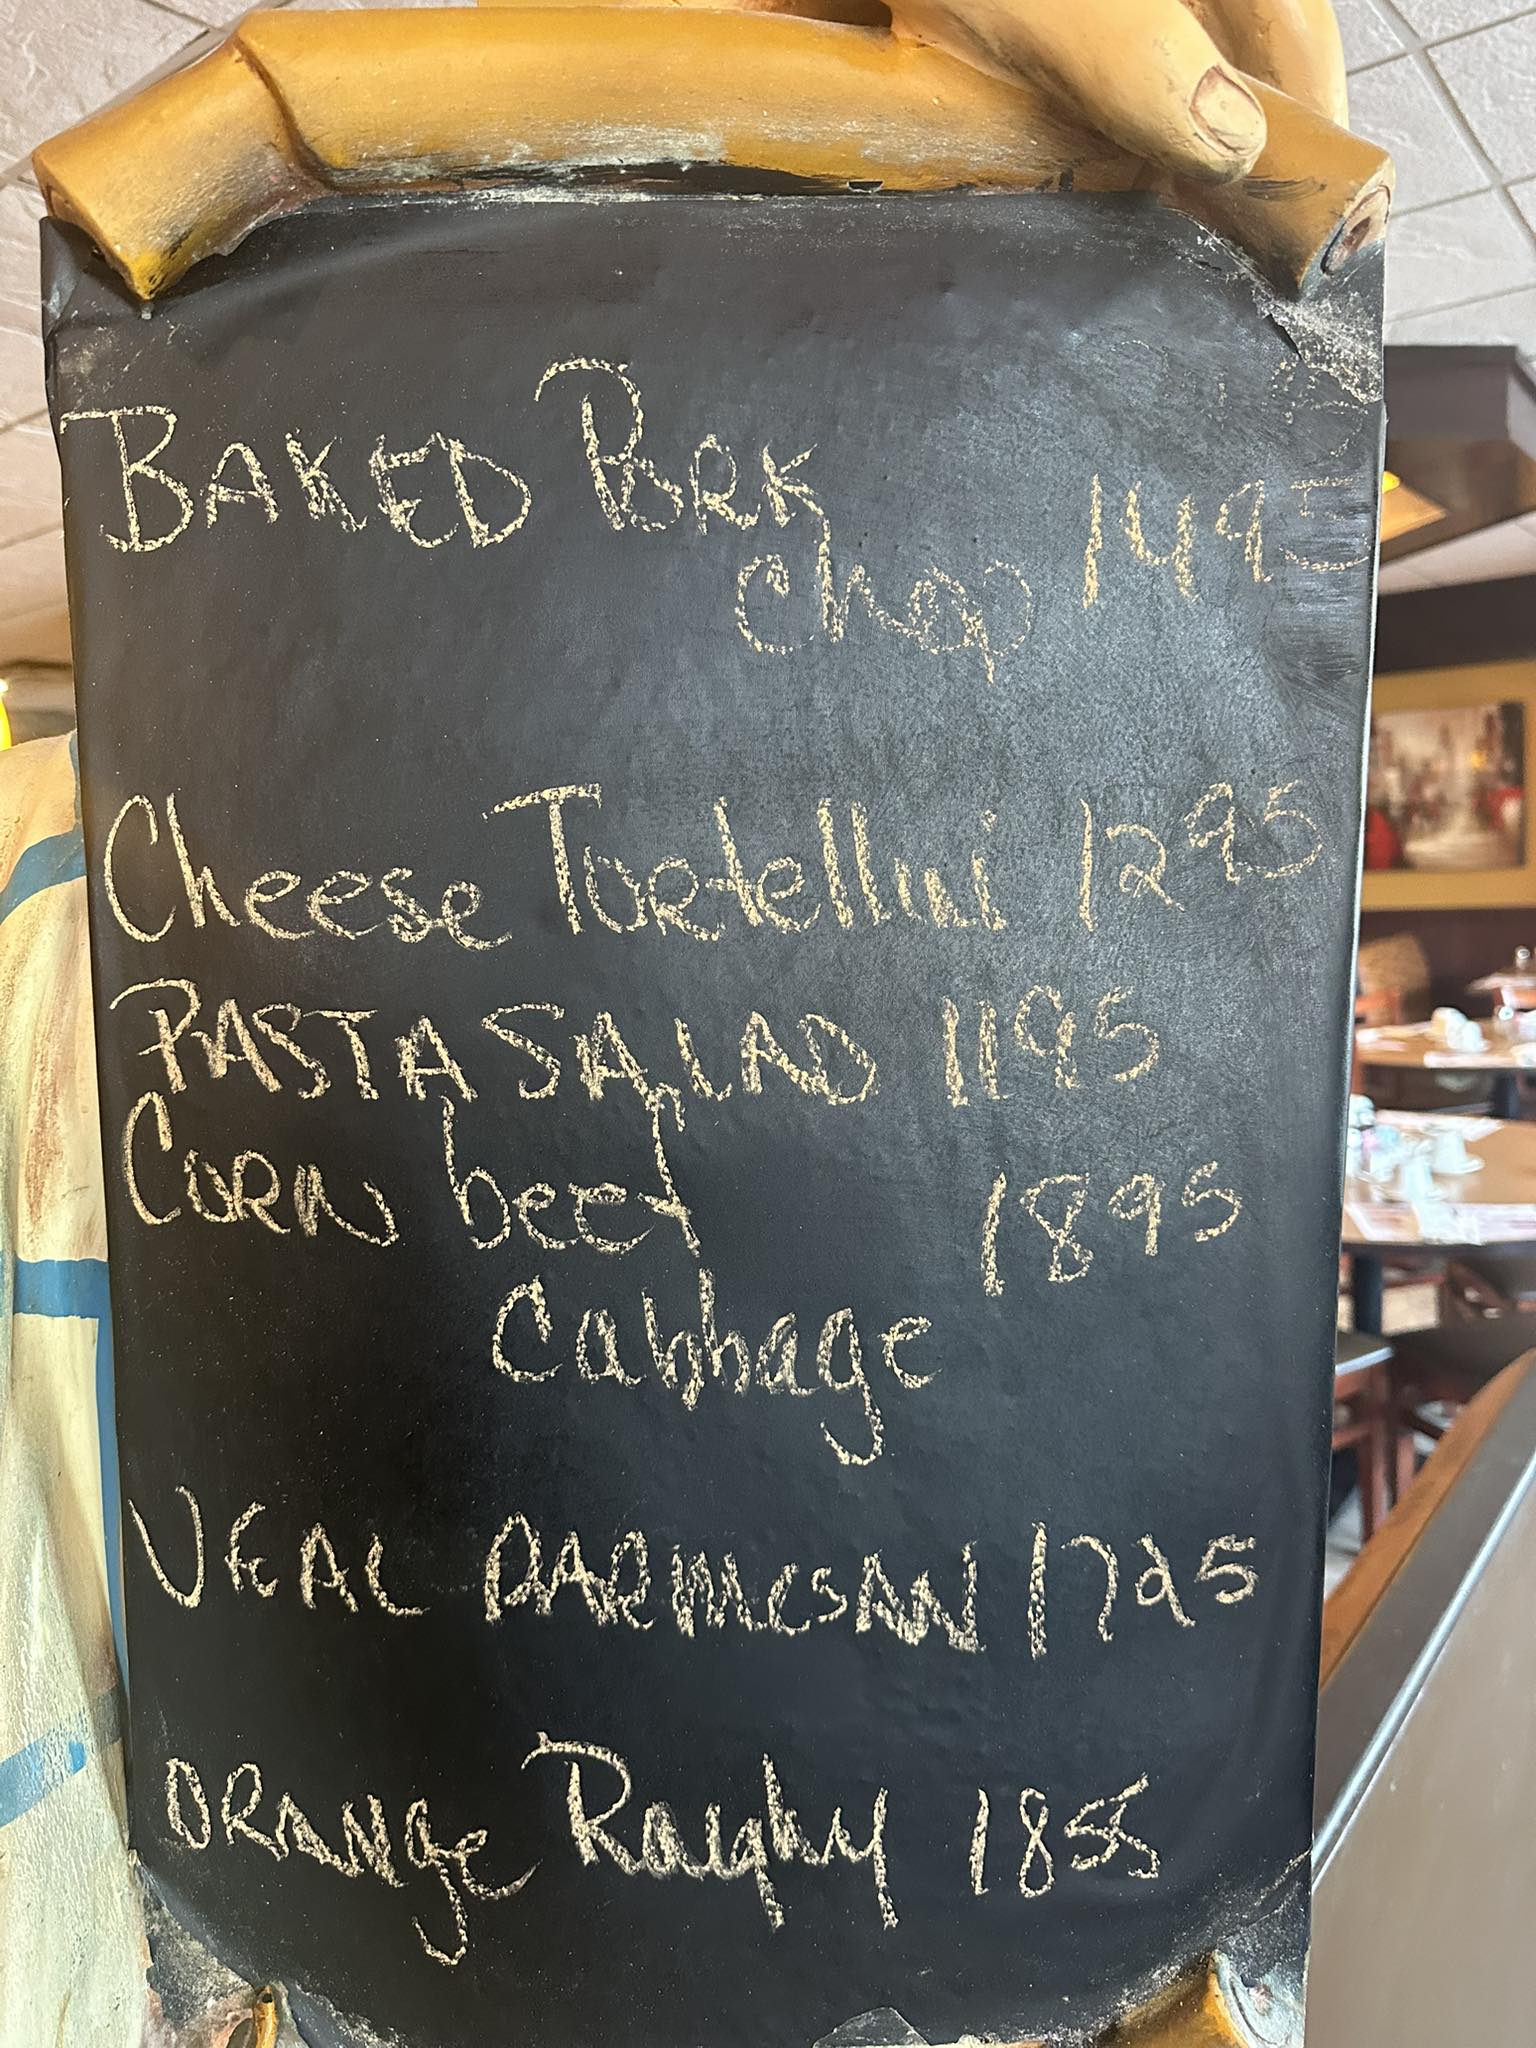 BAKED PORK
Chop 1495
Cheese Tortellini 1295
PASTA SALAD 1195
CORN beef 1895
Cabbage
VEAL PARMESAN 1795
ORANGE Roughy 1855